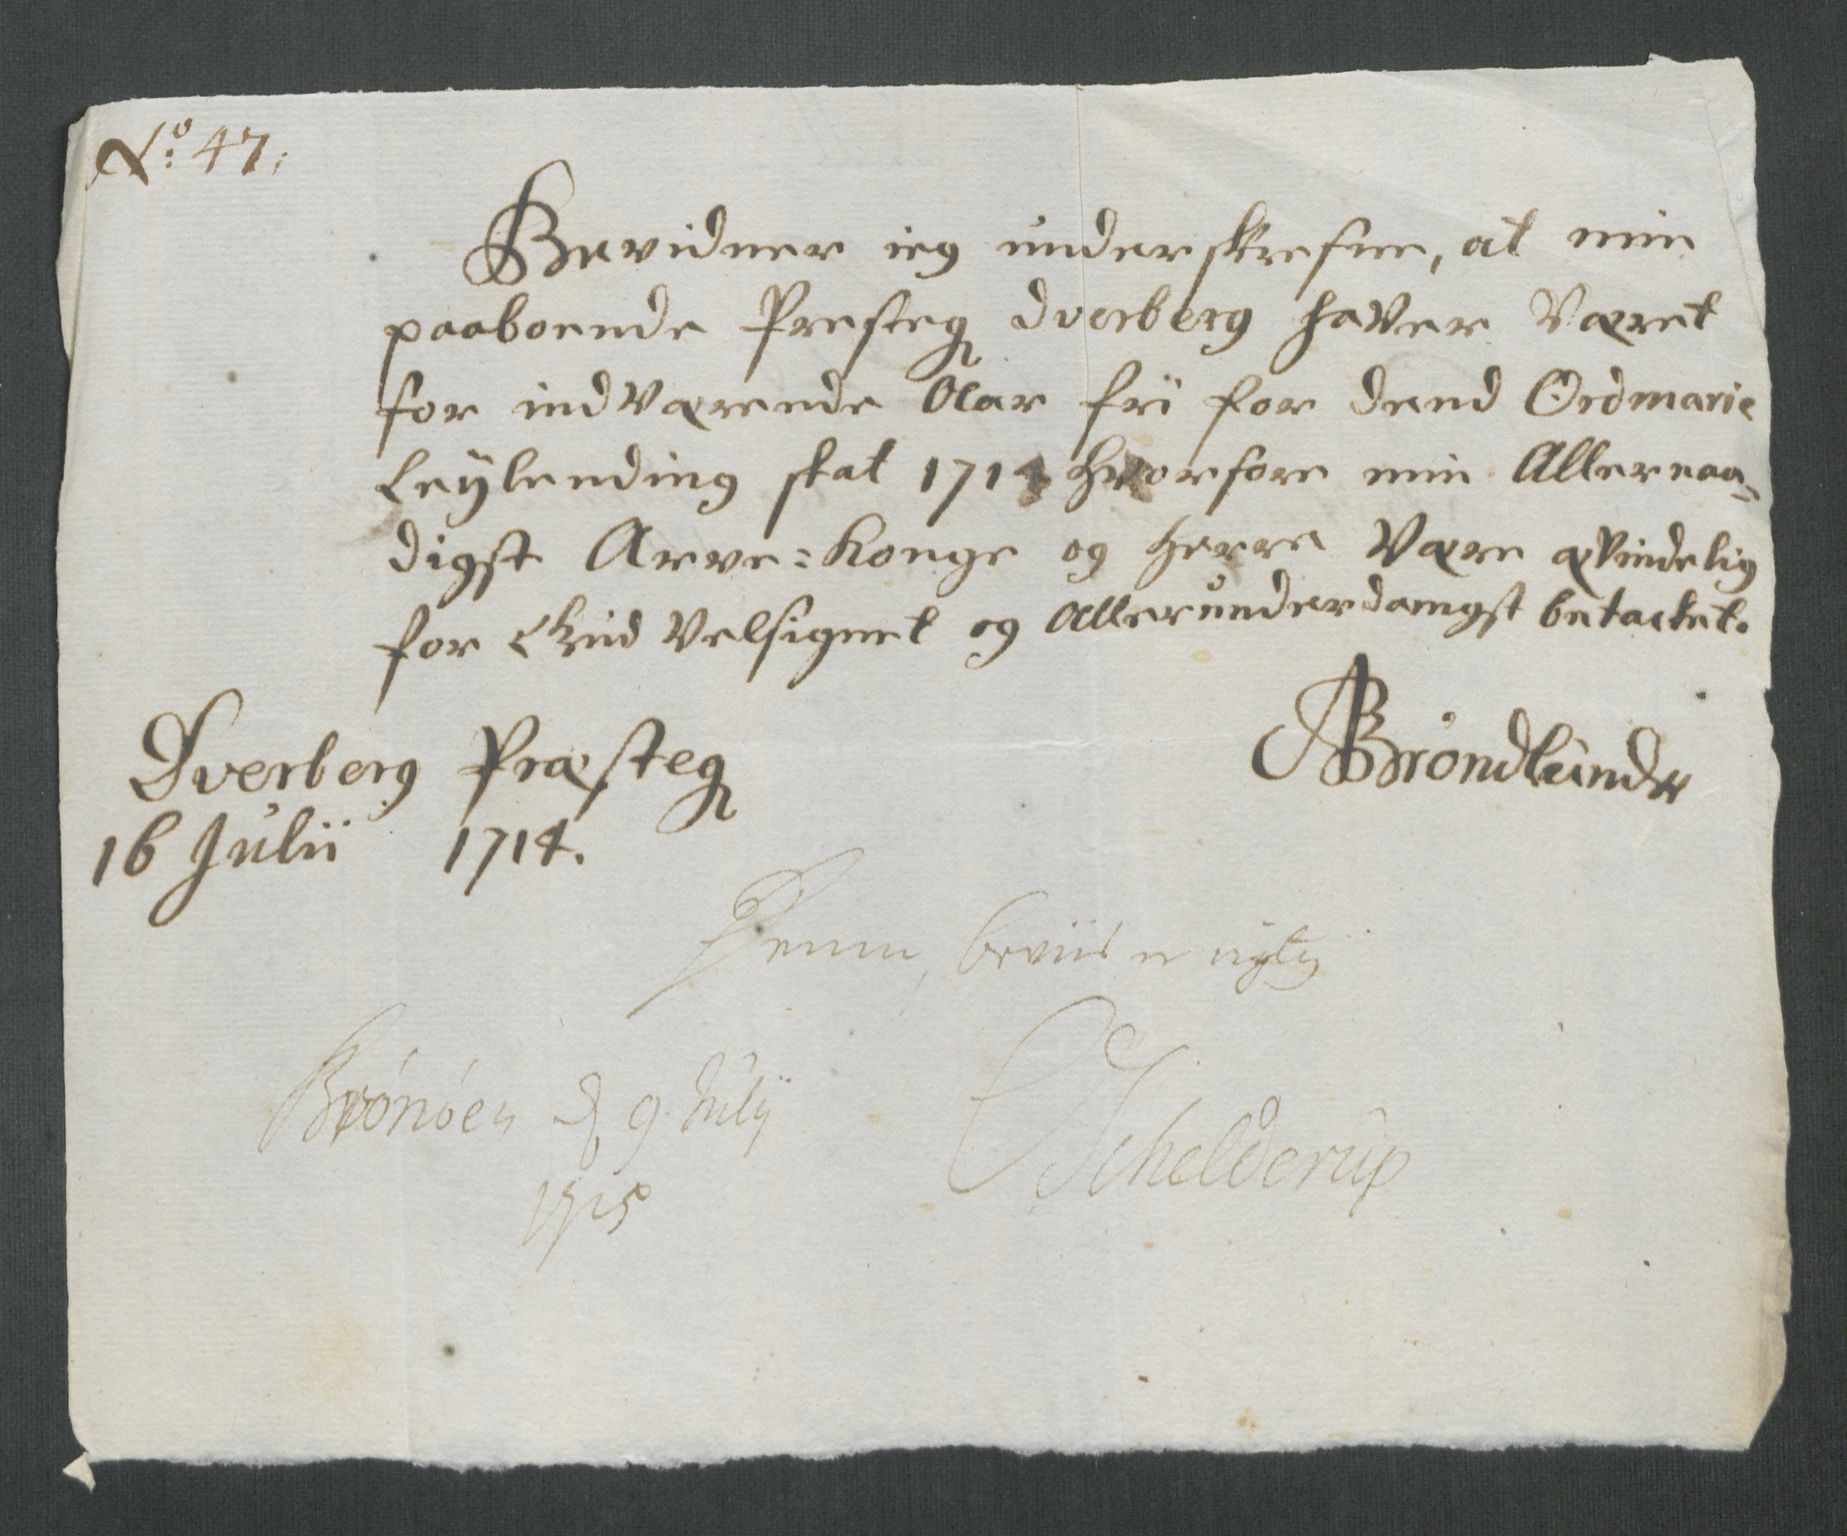 No: 47.
Bevidner ieg underskrefne, at min
paaboende Presteg Dverberg haver Været
for indVærende Aar fri for dend Ordinarie
Leÿlending skat 1714 hvorfore min Allernaa-
digst Arve-Konge og Herre Være ævindelig
for Velsignet og Allerunderdanigst betacket.
Dverberg Præsteg
ABröndlunde
16 Julii 1714.
Denne beviis er rigtig
Brönöen d. 9 Julij
1715
Schelderup